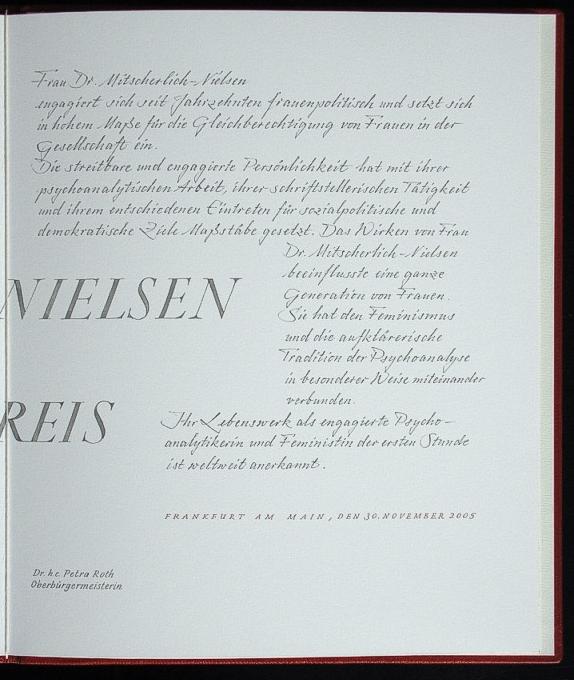 Frau Dr. Mitscherlich-Nielsen
engagiert sich seit Jahrzehnten frauenpolitisch und setzt sich
in hohem Maße für die Gleichberechtigung von Frauen in der
Gesellschaft ein.
Die streitbare und engagierte Persönlichkeit hat mit ihrer
psychoanalytischen Arbeit, ihrer schriftstellerischen Tätigkeit
und ihrem entschiedenen Eintreten für sozialpolitische und
demokratische Ziele Maßstäbe gesetzt. Das Wirken von Frau
Dr. Mitscherlich-Nielsen
beeinflusste eine ganze
Generation von Frauen.
Sie hat den Feminismus
und die aufklärerische
Tradition der Psychoanalyse
in besonderer Weise miteinander
verbunden.
NIELSEN
REIS
Ihr Lebenswerk als engagierte Psycho-
analytikerin und Feministin der ersten Stunde
ist weltweit anerkannt.
FRANKFURT AM MAIN, DEN 30. NOVEMBER 2005
Dr. h.c. Petra Roth
Oberbürgermeisterin